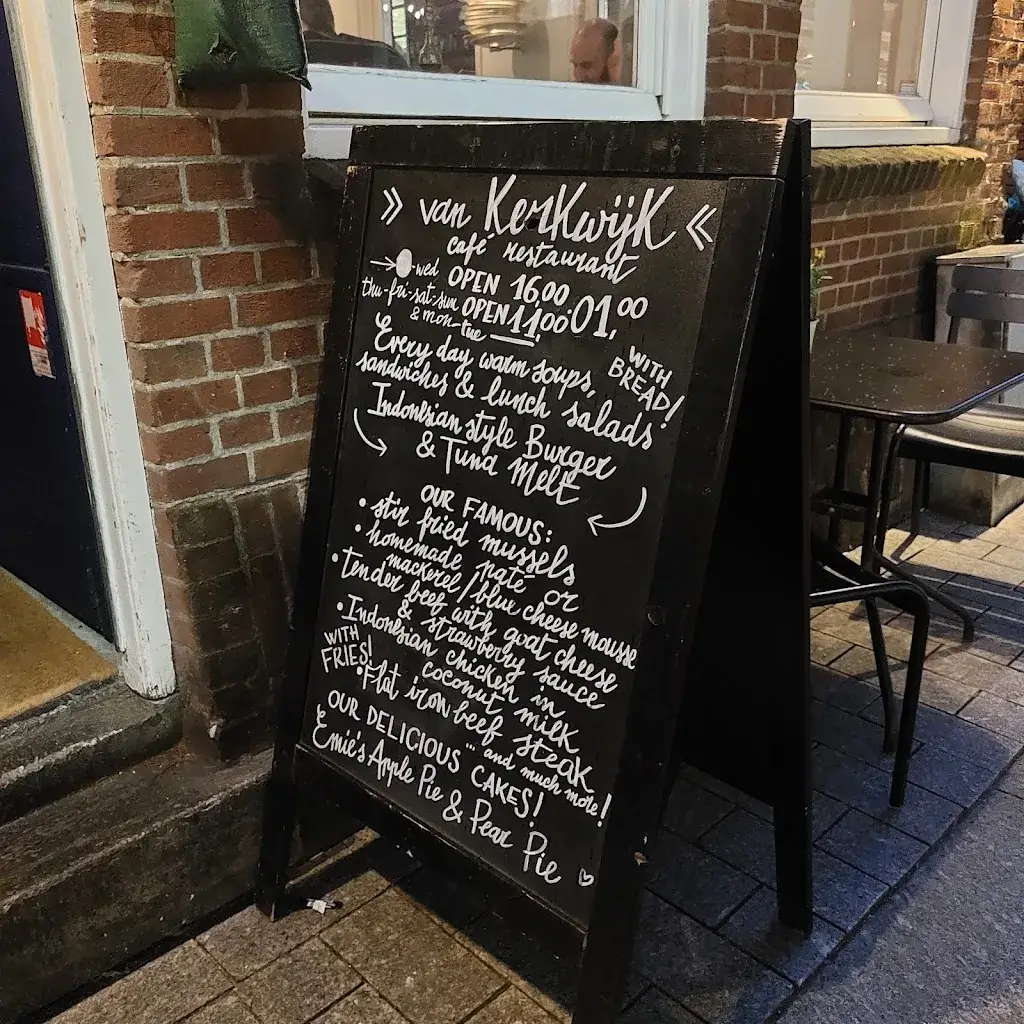 » van Kerkwijk «
café restaurant
wed OPEN 16.00
thu-fri-sat-sun OPEN 11.00-01.00
& mon-tue
Every day, warm soups, WITH BREAD!
sandwiches & lunch salads
Indonesian style Burger
& Tuna Melt
OUR FAMOUS:
• stir fried mussels
• homemade paté or
mackerel/blue cheese mousse
• Tender beef with goat cheese
& strawberry sauce
• Indonesian chicken in
coconut milk
WITH FRIES! • Flat iron beef steak
... and much more!
OUR DELICIOUS CAKES!
Emie's Apple Pie & Pear Pie ♡